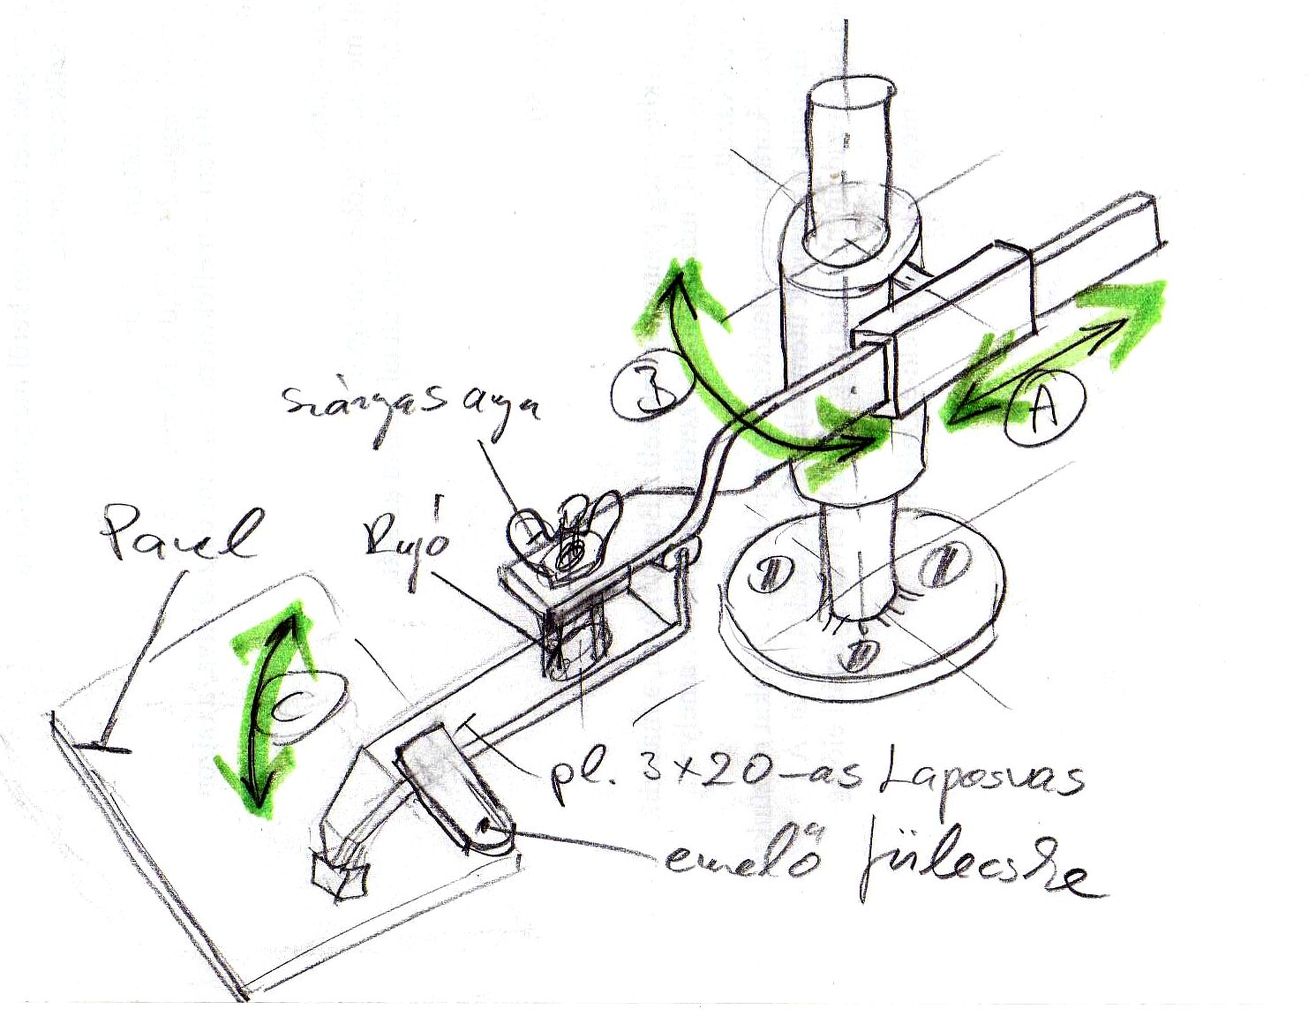 B
A
szárnyas anya
Panel
Rugó
C
pl. 3×20-as Laposvas
emelő fülecske